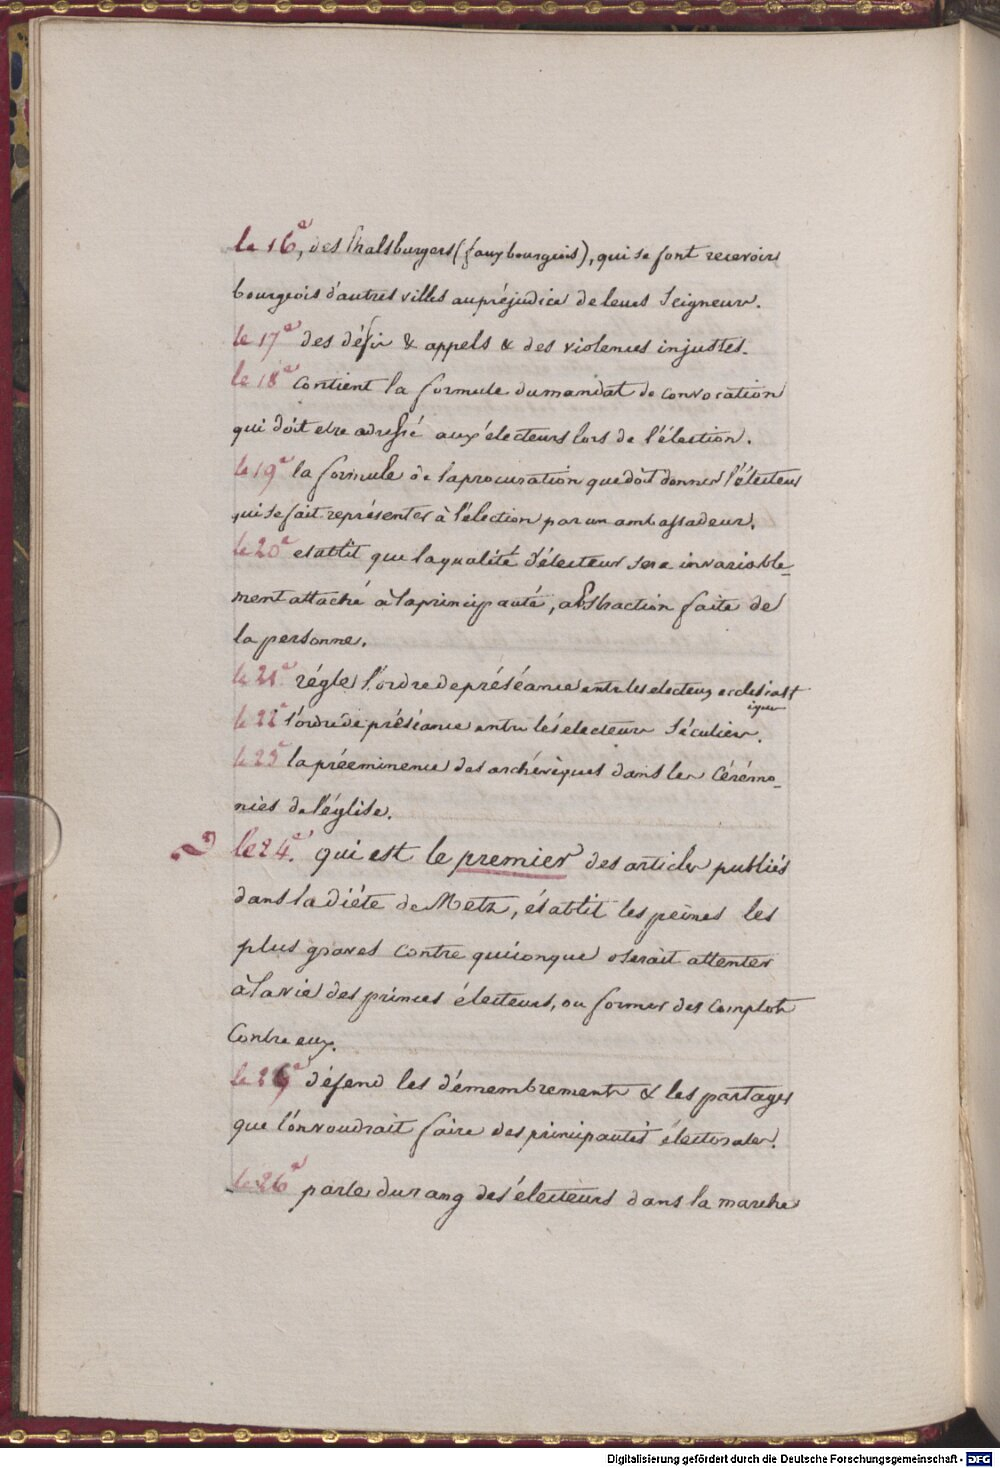 le 16e, des Phalsburgers (fauxbourgeois), qui se font recevoir
bourgeois d'autres villes au préjudice de leurs Seigneurs.
le 17e des défis & appels & des violences injustes.
le 18e Contient la formule du mandat de convocation
qui doit etre adressé aux électeurs lors de l'élection.
le 19e la formule de la procuration que doit donner l'électeur
qui se fait représenter à l'élection par un ambassadeur.
le 20e etablit que la qualité d'électeur sera invariable-
ment attaché à la principauté, abstraction faite de
la personne.
le 21e régle l'ordre de préséance entre les electeurs ecclesiast
iques
le 22e l'ordre de préséance entre les électeurs Séculiers.
le 23e la prééminence des archévêques dans les Cérémo-
nies de l'église.
2) le 24e. qui est le premier des articles publiés
dans la diéte de Metz, établit les peines les
plus graves contre quiconque oserait attenter
à la vie des princes électeurs, ou former des complots
Contre eux.
le 25e défend les démembrements & les partages
que l'on voudrait faire des principautés électorales.
le 26e parle du rang des électeurs dans la marche
Digitalisierung gefördert durch die Deutsche Forschungsgemeinschaft - DFG